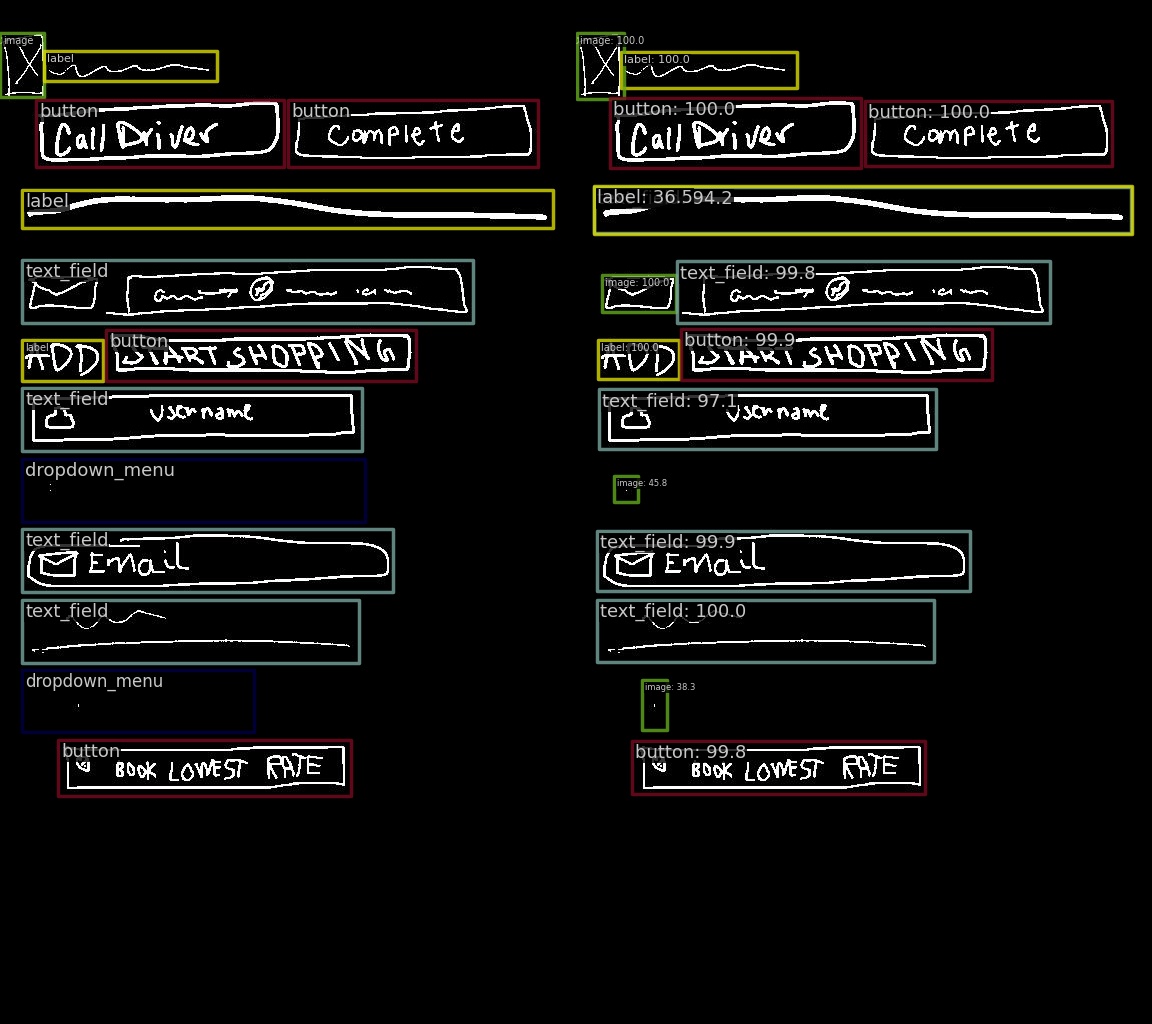 image
label
button button
Call Driver Complete
label
text_field
label button
ADD START SHOPPING
text_field
Username
dropdown_menu
text_field
Email
text_field
dropdown_menu
button
BOOK LOWEST RATE
image: 100.0
label: 100.0
button: 100.0 button: 100.0
Call Driver Complete
label: 36.594.2
image: 100.0 text_field: 99.8
label: 100.0 button: 99.9
ADD START SHOPPING
text_field: 97.1
Username
image: 45.8
text_field: 99.9
Email
text_field: 100.0
image: 38.3
button: 99.8
BOOK LOWEST RATE